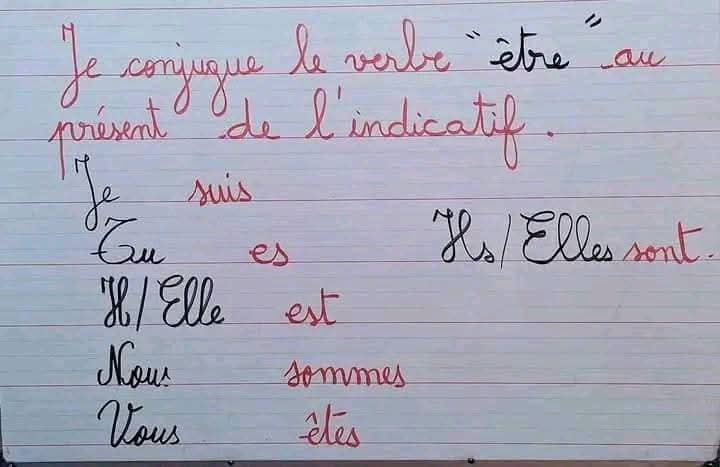 Je conjugue le verbe "être" au
présent de l'indicatif.
Je suis
Tu es Ils/Elles sont.
Il/Elle est
Nous sommes
Vous êtes